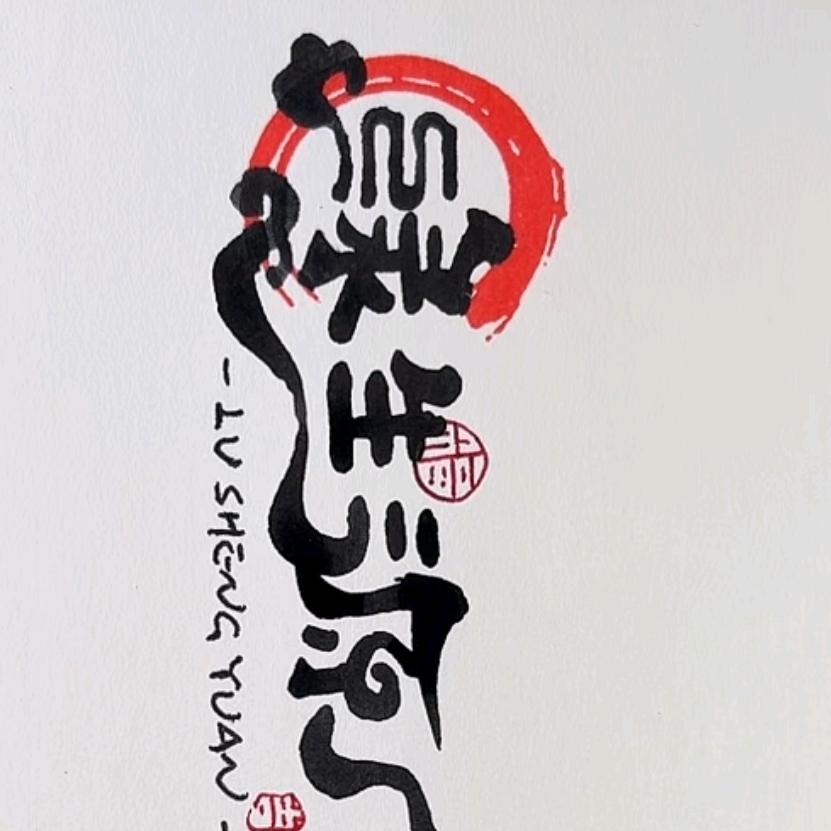 绿生源
- LU SHENG YUAN -